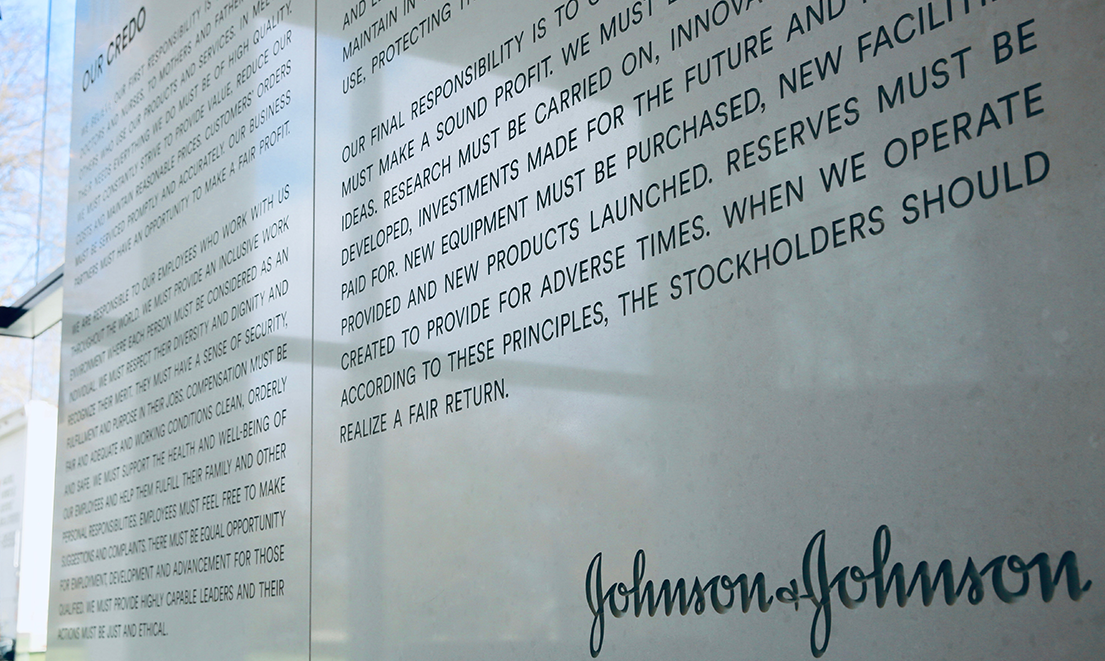 OUR CREDO
WE BELIEVE OUR FIRST RESPONSIBILITY IS
DOCTORS AND NURSES, TO MOTHERS AND FATHERS
OTHERS WHO USE OUR PRODUCTS AND SERVICES. IN MEETING
THEIR NEEDS EVERYTHING WE DO MUST BE OF HIGH QUALITY.
WE MUST CONSTANTLY STRIVE TO PROVIDE VALUE, REDUCE OUR
COSTS AND MAINTAIN REASONABLE PRICES. CUSTOMERS' ORDERS
MUST BE SERVICED PROMPTLY AND ACCURATELY. OUR BUSINESS
PARTNERS MUST HAVE AN OPPORTUNITY TO MAKE A FAIR PROFIT.
WE ARE RESPONSIBLE TO OUR EMPLOYEES WHO WORK WITH US
THROUGHOUT THE WORLD. WE MUST PROVIDE AN INCLUSIVE WORK
ENVIRONMENT WHERE EACH PERSON MUST BE CONSIDERED AS AN
INDIVIDUAL. WE MUST RESPECT THEIR DIVERSITY AND DIGNITY AND
RECOGNIZE THEIR MERIT. THEY MUST HAVE A SENSE OF SECURITY,
FULFILLMENT AND PURPOSE IN THEIR JOBS. COMPENSATION MUST BE
FAIR AND ADEQUATE AND WORKING CONDITIONS CLEAN, ORDERLY
AND SAFE. WE MUST SUPPORT THE HEALTH AND WELL-BEING OF
OUR EMPLOYEES AND HELP THEM FULFILL THEIR FAMILY AND OTHER
PERSONAL RESPONSIBILITIES. EMPLOYEES MUST FEEL FREE TO MAKE
SUGGESTIONS AND COMPLAINTS. THERE MUST BE EQUAL OPPORTUNITY
FOR EMPLOYMENT, DEVELOPMENT AND ADVANCEMENT FOR THOSE
QUALIFIED. WE MUST PROVIDE HIGHLY CAPABLE LEADERS AND THEIR
ACTIONS MUST BE JUST AND ETHICAL.
MAINTAIN IN
USE, PROTECTING
OUR FINAL RESPONSIBILITY IS TO
MUST MAKE A SOUND PROFIT. WE MUST
IDEAS. RESEARCH MUST BE CARRIED ON,
DEVELOPED, INVESTMENTS MADE FOR THE FUTURE AND
PAID FOR. NEW EQUIPMENT MUST BE PURCHASED, NEW
PROVIDED AND NEW PRODUCTS LAUNCHED. RESERVES MUST BE
CREATED TO PROVIDE FOR ADVERSE TIMES. WHEN WE OPERATE
ACCORDING TO THESE PRINCIPLES, THE STOCKHOLDERS SHOULD
REALIZE A FAIR RETURN.
Johnson & Johnson